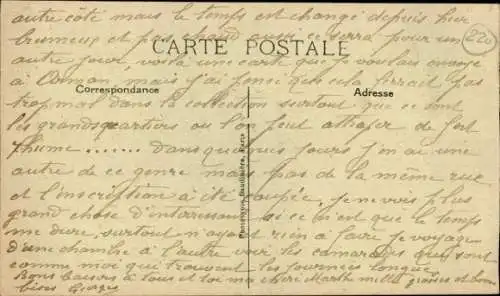 autre côté mais le temps est changé depuis hier
brumeux et pas chaud aussi ce serra pour un
220
CARTE POSTALE
autre jour, voila une carte que je voulais envoye
à mais j'ai pensé que cela ferrait pas
Correspondance
Adresse
trop mal dans la collection surtout que ce sont
les grands quartiers ou l'on peut attraper de fort
rhume ....... dans quelques jours j'en ai une
autre de ce genre mais pas de la même rue
et l'inscription a été coupée, je ne vois plus
grand chose d'interressant si ce n'est que le temps
me dure, surtout n'ayant rien à faire je voyage
d'une chambre à l'autre voir les camarades qui sont
comme moi qui trouvent les journées longue
Bons Baisers à tous et toi ma chere Marthe mille grosses et bonnes
bises Georges